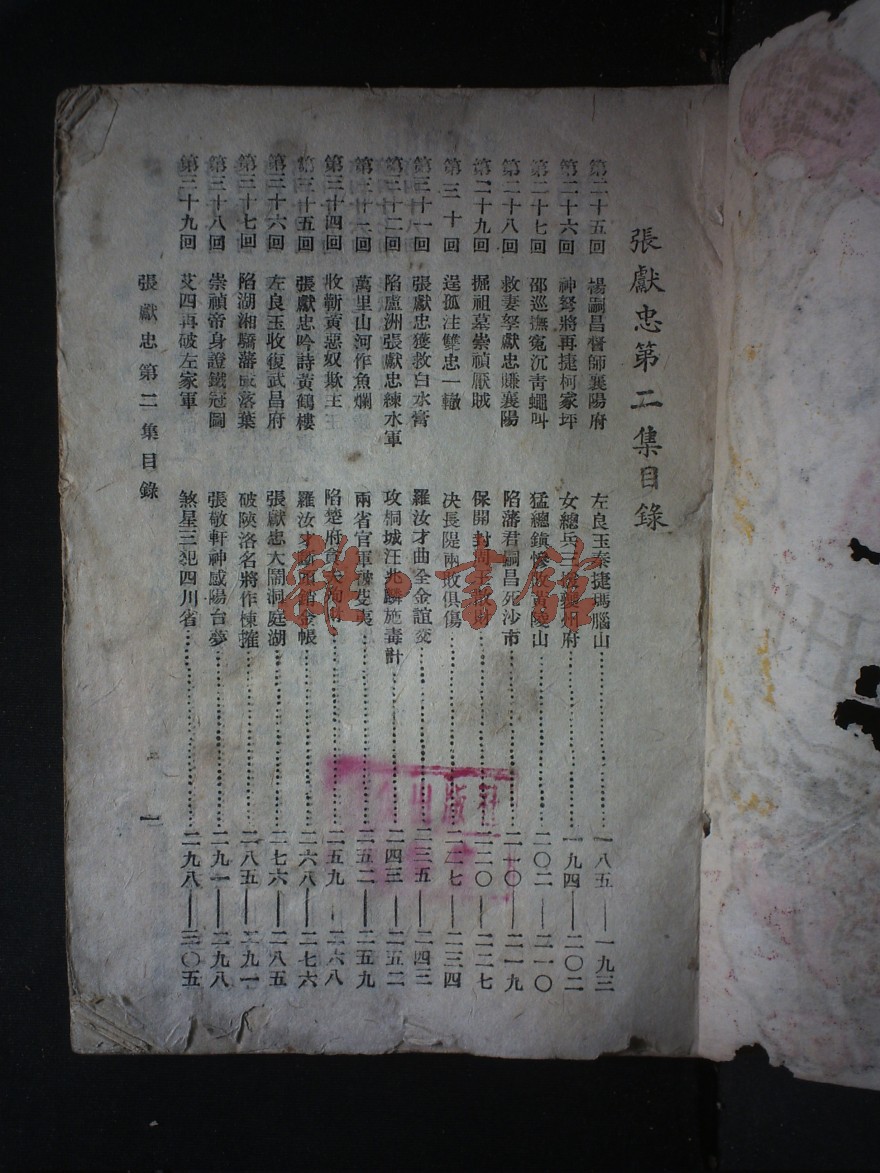 張獻忠第二集目錄
第二十五回 楊嗣昌督師襄陽府 左良玉奏捷瑪腦山 一八五——一九三
第二十六回 神弩將再捷柯家坪 女總兵三 夔州府 一九四——二〇二
第二十七回 邵巡撫寃沉青蠅叫 猛總鎮慘敗黃陵山 二〇二——二一〇
第二十八回 救妻孥獻忠賺襄陽 陷藩君嗣昌死沙市 二一〇——二一九
第二十九回 掘祖墓崇禎厭賊 保開封周王 二二〇——二二七
第三十回 逞孤注雙忠一轍 决長隄兩敗俱傷 二二七——二三四
第三十一回 張獻忠獲救白水膏 羅汝才曲全金誼交 二三五——二四三
第三十二回 陷盧洲張獻忠練水軍 攻桐城汪兆麟施毒計 二四三——二五二
第三十三回 萬里山河作魚爛 兩省官軍 夷 二五二——二五九
第三十四回 收蘄黃惡奴欺主 陷楚府 二五九——二六八
第三十五回 張獻忠吟詩黃鶴樓 羅汝才 銷金帳 二六八——二七六
第三十六回 左良玉收復武昌府 張獻忠大鬧洞庭湖 二七六——二八五
第三十七回 陷湖湘驕藩 落葉 破陝洛名將作棟摧 二八五——二九一
第三十八回 崇禎帝身證鐵冠圖 張敬軒神感陽台夢 二九一——二九八
第三十九回 艾四再破左家軍 煞星三犯四川省 二九八——三〇五
張獻忠第二集目錄 一
雜書館
出版社